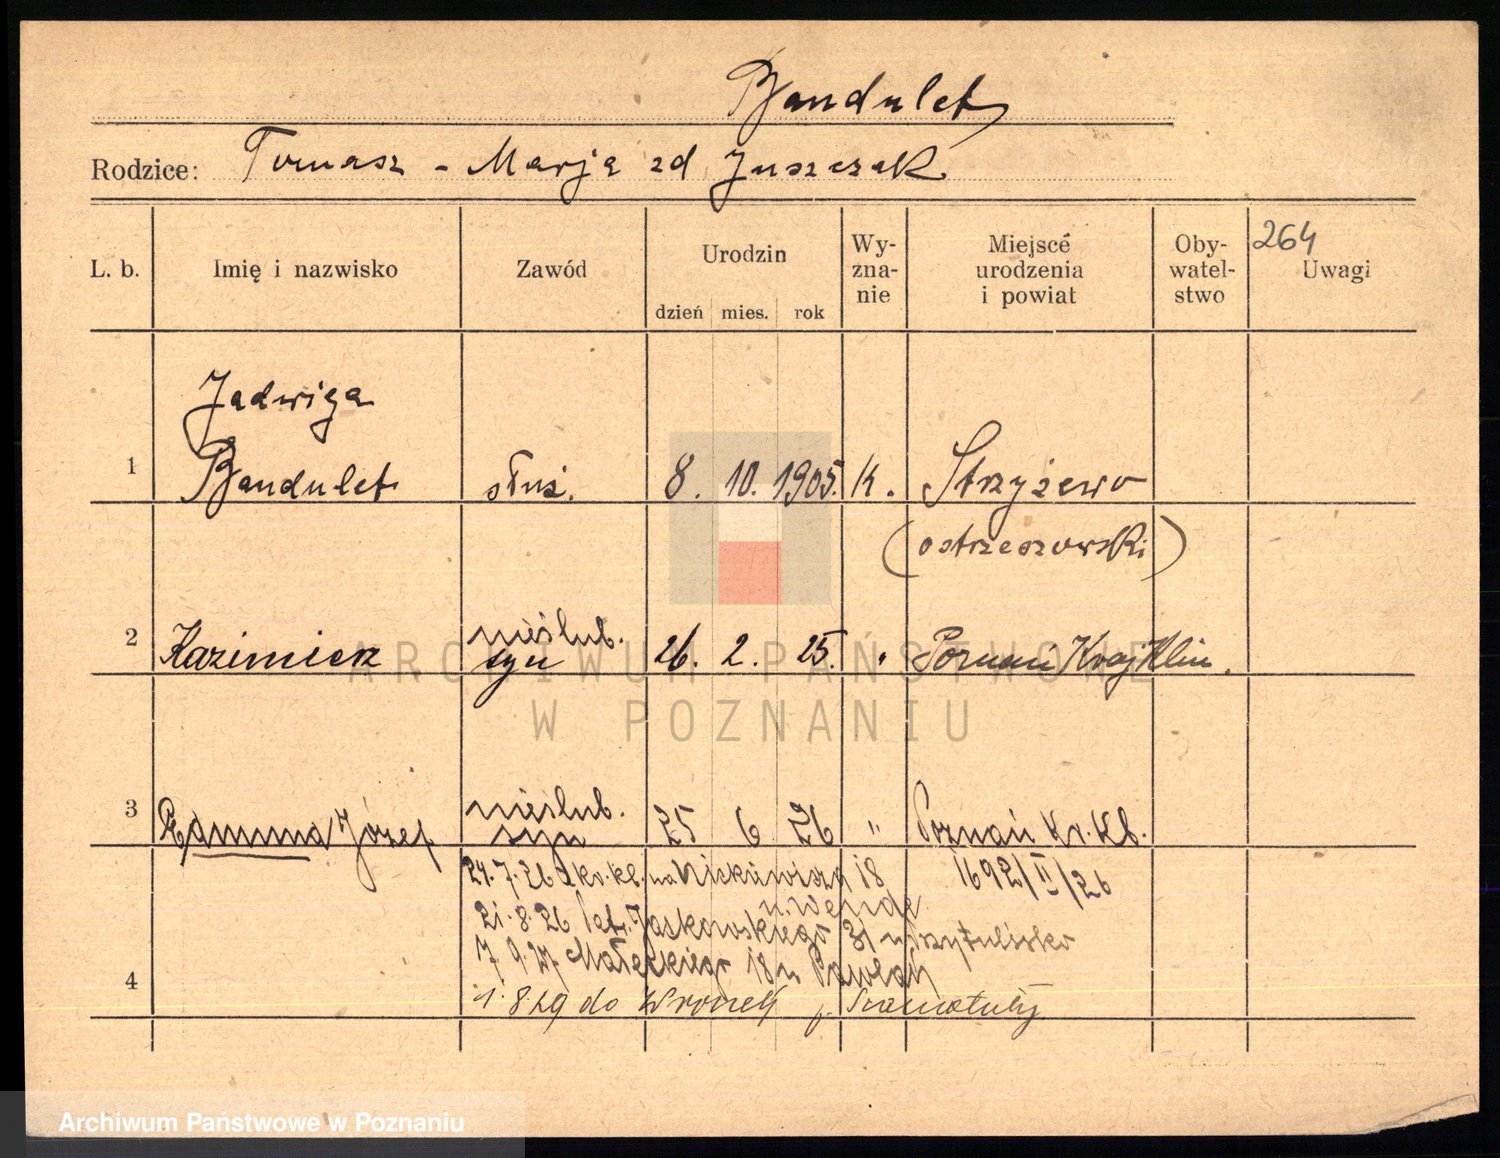 Bandulet
Rodzice: Tomasz - Marja zd Juszczak
264
L. b. Imię i nazwisko Zawód Urodzin dzień mies. rok Wy-zna-nie Miejsce urodzenia i powiat Oby-watel-stwo Uwagi
Jadwiga
1 Bandulet służ. 8. 10. 1905. K. Strzyżewo
(ostrzeszowski)
nieślub.
2 Kazimierz syn 26. 2. 25. " Poznań Kraj Klin.
nieślub.
3 Ramuna Józef syn 25 6 26 " Poznań Kr. Kl.
24.7.26 z kr. kl. na Mickiewicza 18 1692/II/26
u. Wende
21.8.26 Jaskowskiego 31 u przytulisko
7.9.27 Małeckiego 18 u
4
1.8.29 do Wronek p. Szamotuły
ARCHIWUM PAŃSTWOWE
W POZNANIU
Archiwum Państwowe w Poznaniu